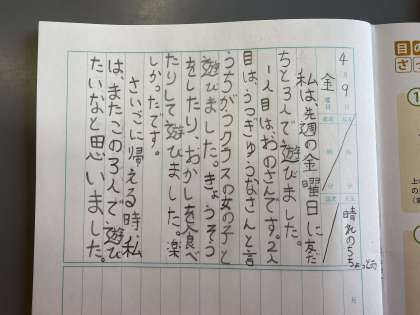 4月9日
金曜日
晴れのちちょっと
私は、先週の金曜日に友だ
ちと3人で遊びました。
一人目は、おのさんです。2人
目は、うつぎゅうなさんと言
うちがうクラスの女の子と
遊びました。きょうそう
をしたり、おかしを食べ
たりして遊びました。楽
しかったです。
さいごに帰える時、私
は、またこの3人で遊び
たいなと思いました。
目の
さっ